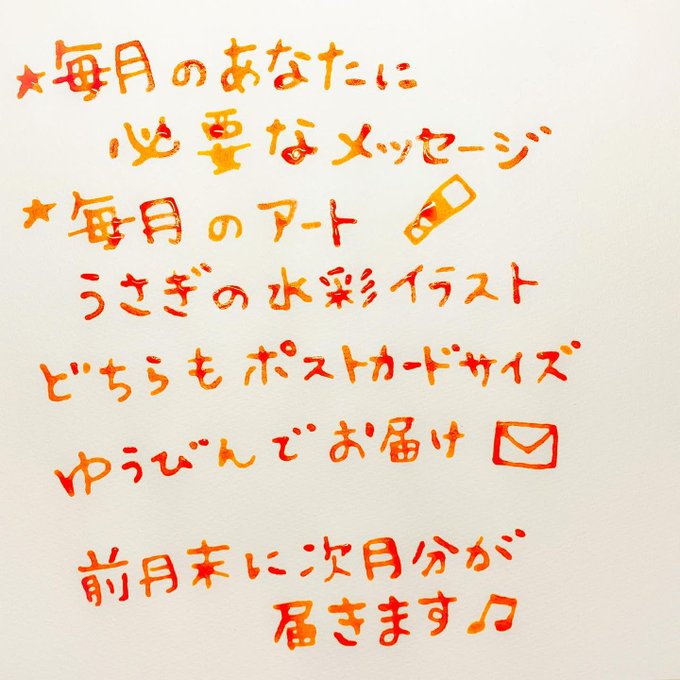 ★毎月のあなたに
必要なメッセージ
★毎月のアート
うさぎの水彩イラスト
どちらもポストカードサイズ
ゆうびんでお届け
前月末に次月分が
届きます♫